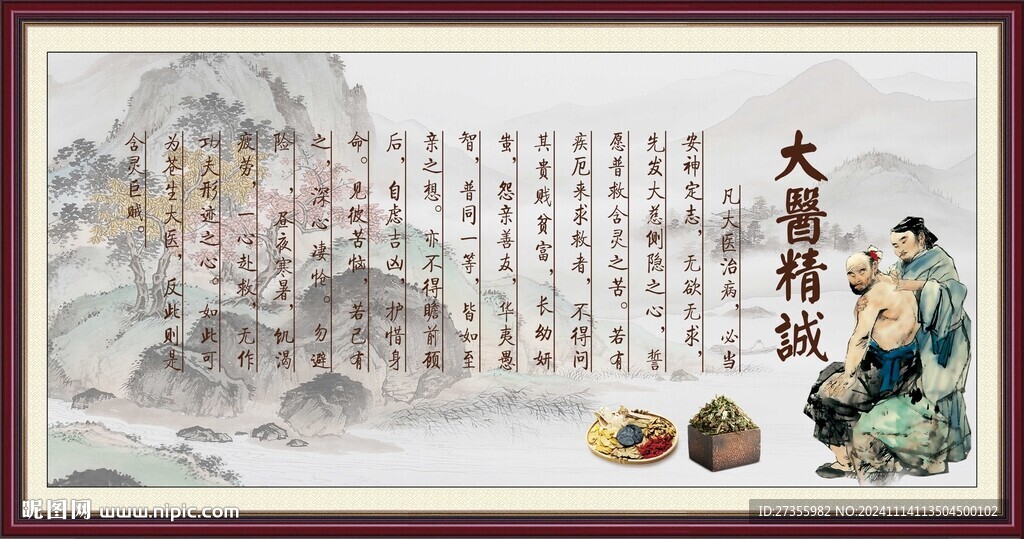 大醫精誠
凡大医治病，必当
安神定志，无欲无求，
先发大慈侧隐之心，誓
愿普救含灵之苦。若有
疾厄来求救者，不得问
其贵贱贫富，长幼妍
蚩，怨亲善友，华夷愚
智，普同一等，皆如至
亲之想。亦不得瞻前顾
后，自虑吉凶，护惜身
命。见彼苦恼，若己有
之，深心凄怆。勿避
险，昼夜寒暑，饥渴
疲劳，一心赴救，无作
功夫形迹之心。如此可
为苍生大医，反此则是
含灵巨贼。
昵图网 www.nipic.com
ID:27355982 NO:20241114113504500102